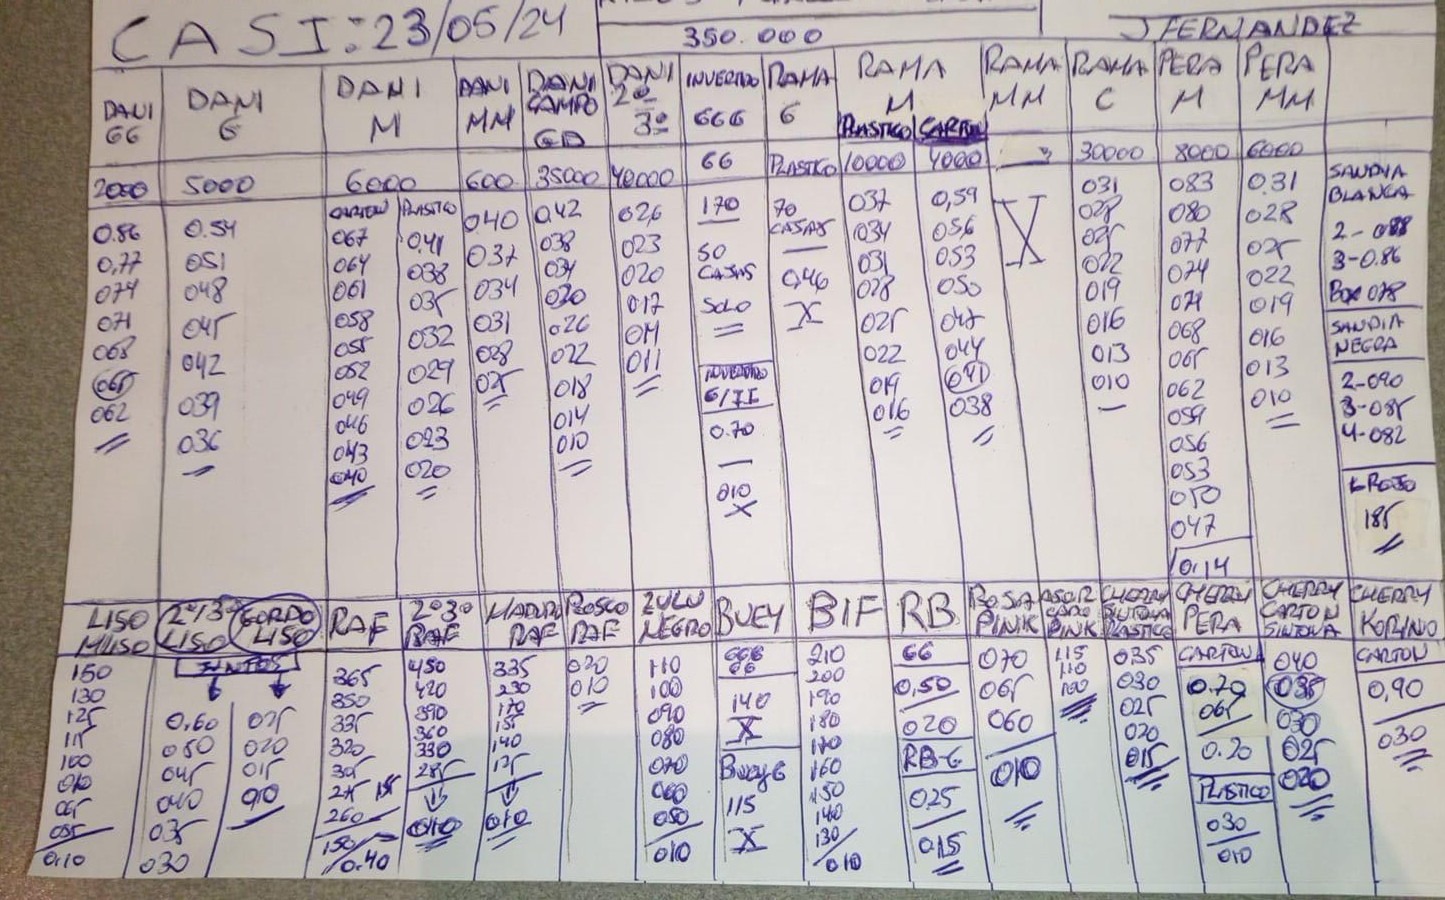 CASI: 23/05/24
350.000
J FERNANDEZ
DANI 66
DANI 6
DANI M
DANI MM
DANI CAMPO GD
DANI 2º 3º
INVERTIDO 666
RAMA 6
RAMA M
PLASTICO CARTON
RAMA MM
RAMA C
PERA M
PERA MM
2000 5000 6000 600 35000 40000 66 PLASTICO 10000 4000 30000 8000 6000
0.86
0,77
074
071
068
065
062
0.54
051
048
045
042
039
036
CARTON
067
064
061
058
055
052
049
046
043
040
PLASTICO
0,41
038
035
032
029
026
023
020
040
037
034
031
028
025
0,42
038
034
030
026
022
018
014
010
026
023
020
017
014
011
170
50
CAJAS
SOLO
INVERTIDO
6/II
0.70
010
X
70
CAJAS
0,46
X
037
034
031
028
025
022
019
016
0,59
056
053
050
047
044
041
038
X
031
028
025
022
019
016
013
010
083
080
077
074
071
068
065
062
059
056
053
050
047
0.14
0.31
028
025
022
019
016
013
010
SANDIA
BLANCA
2-088
3-0.86
BOX 078
SANDIA
NEGRA
2-090
3-085
4-082
K ROJO
185
LISO
M LISO
150
130
125
115
100
010
065
055
0.10
2º/3º
LISO
GORDO
LISO
JUNTOS
0,60
050
045
040
035
030
025
020
015
010
RAF
365
350
335
320
305
275 185
260
150
0.40
2º3º
RAF
450
420
390
360
330
285
010
MADURO
RAF
335
230
170
155
140
125
010
BOSCO
RAF
020
010
ZULU
NEGRO
110
100
090
080
070
060
050
010
BUEY
666
66
140
X
BUEY 6
115
X
BIF
210
200
190
180
170
160
150
140
130
010
RB
66
0,50
020
RB-6
025
0.15
ROSA
PINK
070
065
060
010
ASURCADO
PINK
115
110
100
CHERRY
SINTONIA
PLASTICO
035
030
025
020
015
CHERRY
PERA
CARTON
0.70
065
0.20
PLASTICO
030
010
CHERRY
CARTON
SINTONIA
040
035
030
025
020
CHERRY
KORINO
CARTON
0,90
030